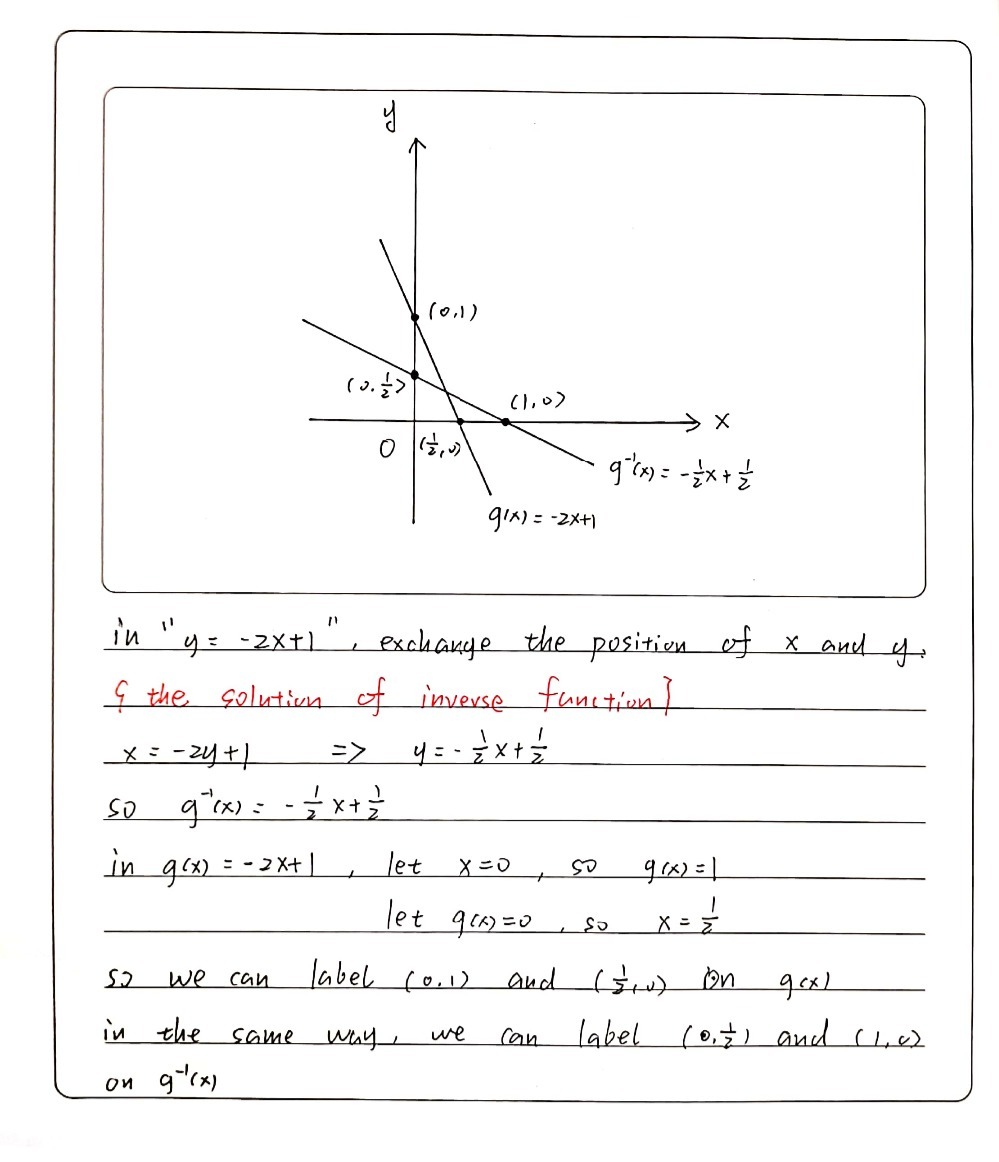 y
(0,1)
(0,½)
(1,0)
x
O
(½,0)
g⁻¹(x) = -½x + ½
g(x) = -2x+1
in "y = -2x+1", exchange the position of x and y.
{ the solution of inverse function }
x = -2y+1 => y = -½x + ½
so g⁻¹(x) = -½x + ½
in g(x) = -2x+1, let x=0, so g(x)=1
let g(x)=0, so x = ½
so we can label (0,1) and (½,0) on g(x)
in the same way, we can label (0,½) and (1,0)
on g⁻¹(x)